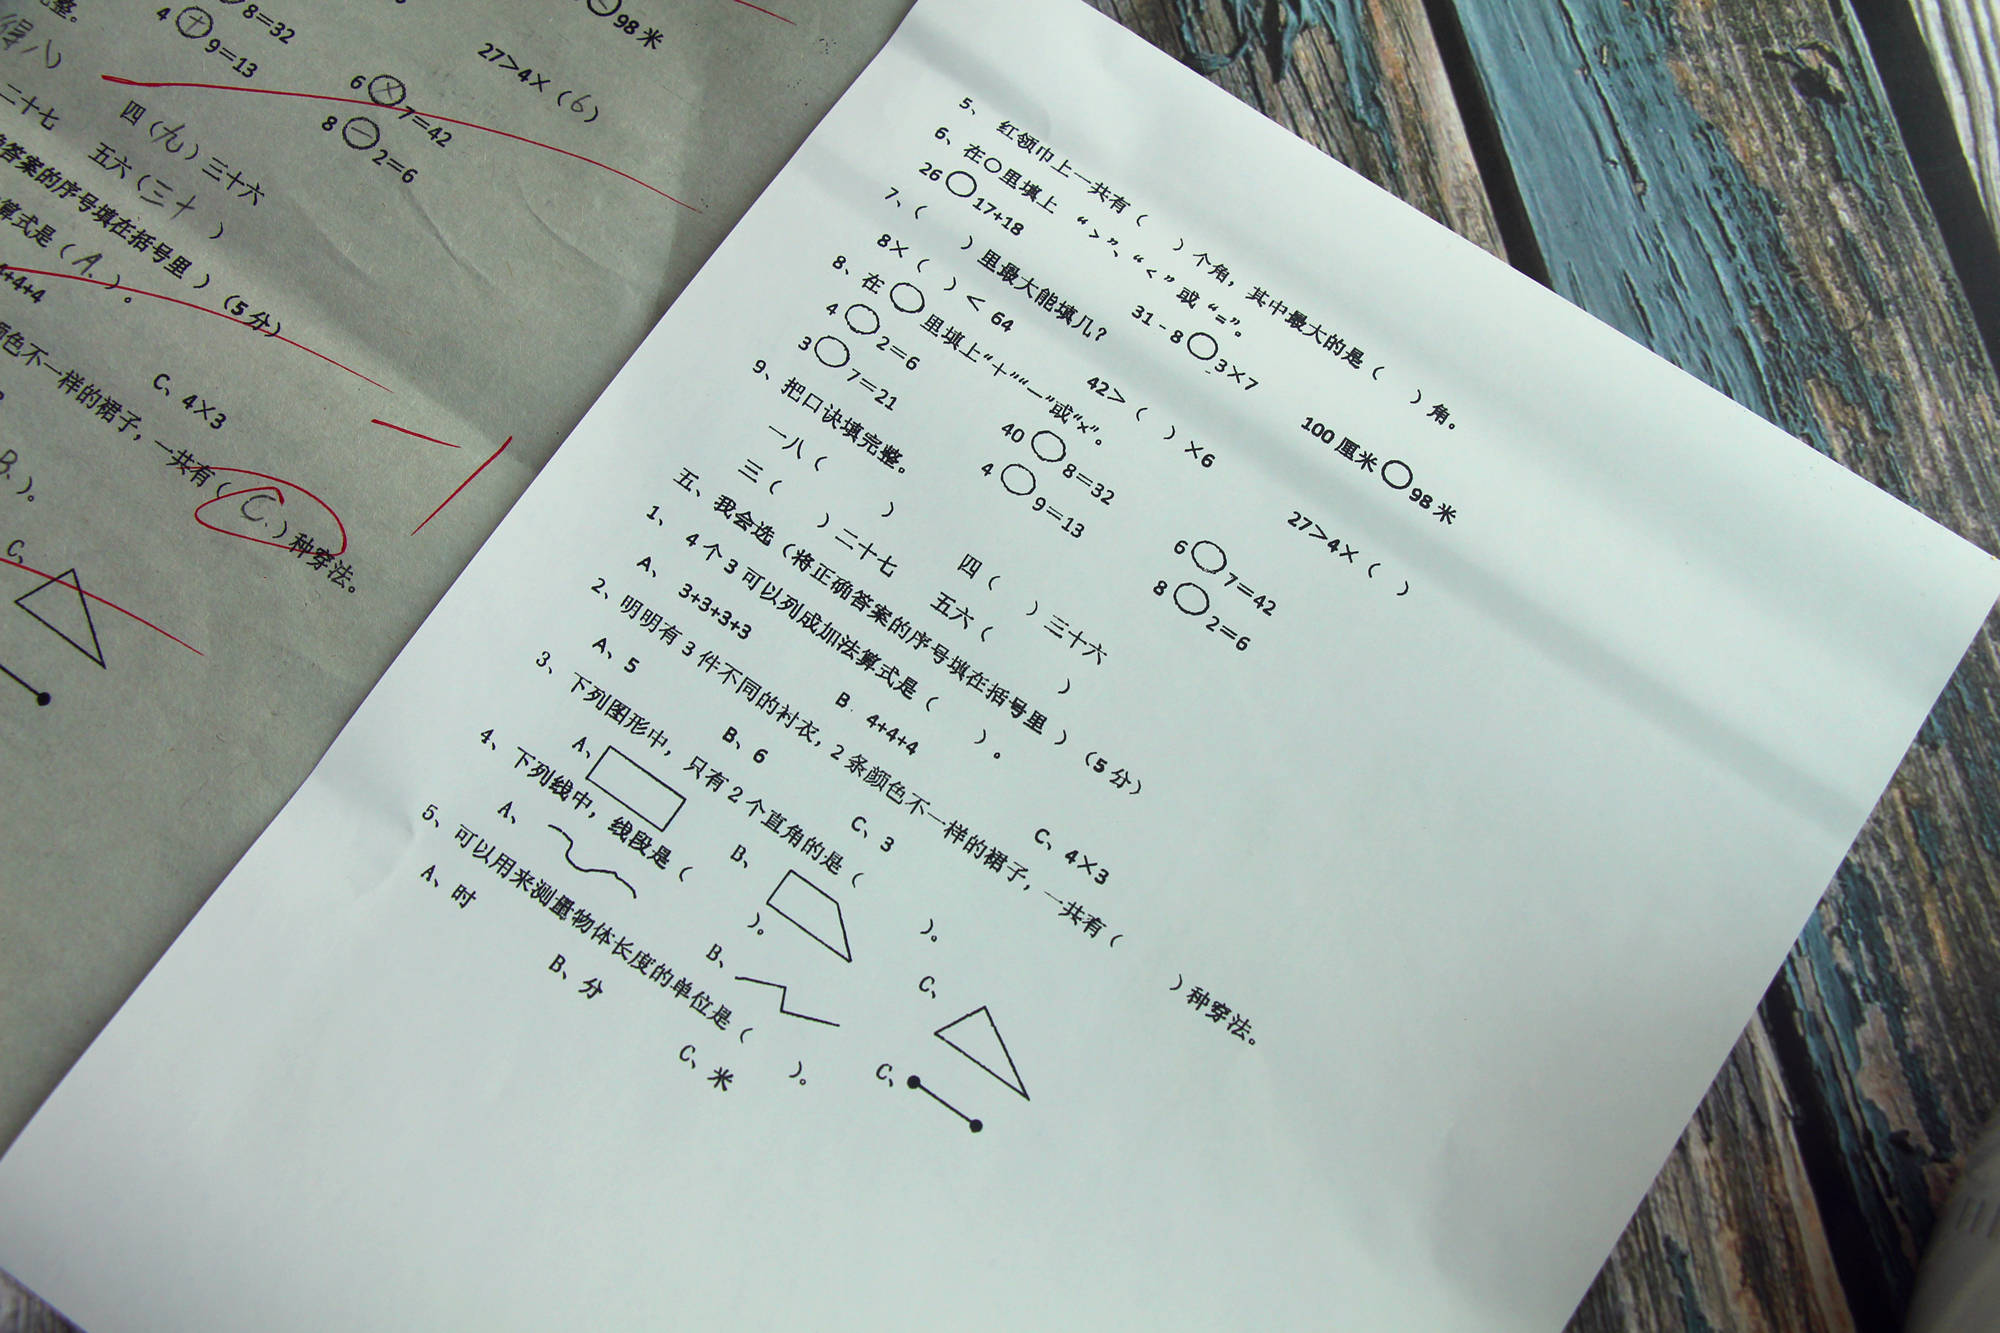 整。
得八）
8=32
4 + 9=13
98米
27>4×（6）
6 × 7=42
8 － 2=6
二十七
四（九）三十六
五六（三十 ）
答案的序号填在括号里 ）（5分）
算式是（A. ）。
4+4+4
C、4×3
颜色不一样的裙子，一共有（C. ）种穿法。
B. ）。
C、
5、 红领巾上一共有（ ）个角，其中最大的是（ ）角。
6、在○里填上 “>”、“<”或“=”。
26○17+18 31-8○3×7 100厘米○98米
7、（ ）里最大能填几？
8×（ ）< 64 42>（ ）×6 27>4×（ ）
8、在○里填上“＋”“－”或“×”。
4○2=6 40○8=32 6○7=42
3○7=21 4○9=13 8○2=6
9、把口诀填完整。
一八（ ） 四（ ）三十六
三（ ）二十七 五六（ ）
五、我会选（将正确答案的序号填在括号里 ）（5分）
1、 4个3可以列成加法算式是（ ）。
A、 3+3+3+3 B 4+4+4 C、4×3
2、明明有3件不同的衬衣，2条颜色不一样的裙子，一共有（ ）种穿法。
A、5 B、6 C、3
3、下列图形中，只有2个直角的是（ ）。
A、 B、 C、
4、下列线中，线段是（ ）。
A、 B、 C、
5、可以用来测量物体长度的单位是（ ）。
A、时 B、分 C、米